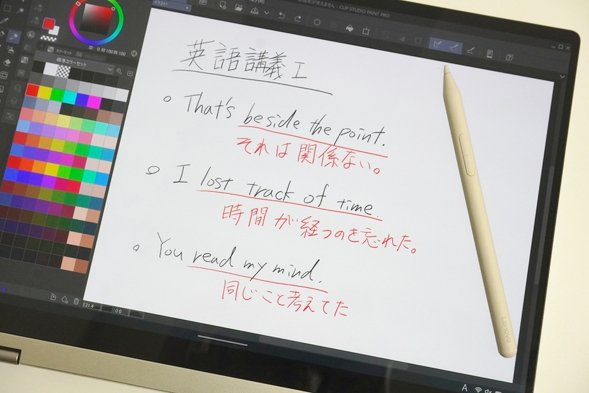 CLIP STUDIO PAINT PRO
英語講義 I
○ That's beside the point.
それは関係ない。
○ I lost track of time
時間が経つのを忘れた。
○ You read my mind.
同じこと考えてた